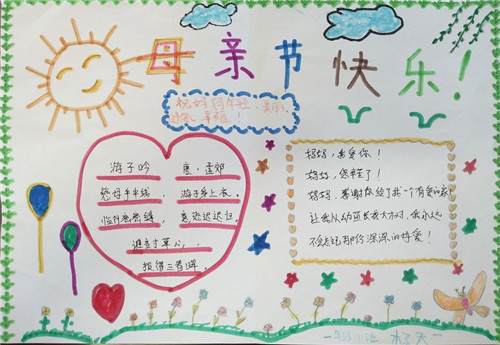 母亲节快乐！
祝妈妈年轻、美丽、
幸福！
游子吟 唐·孟郊
慈母手中线，游子身上衣，
临行密密缝，意恐迟迟归。
谁言寸草心，
报得三春晖。
妈妈，我爱你！
妈妈，您辛苦了！
妈妈，感谢你给了我一个有爱的家！
让我从幼苗长成大树，我永远
不会忘记那份深深的母爱！